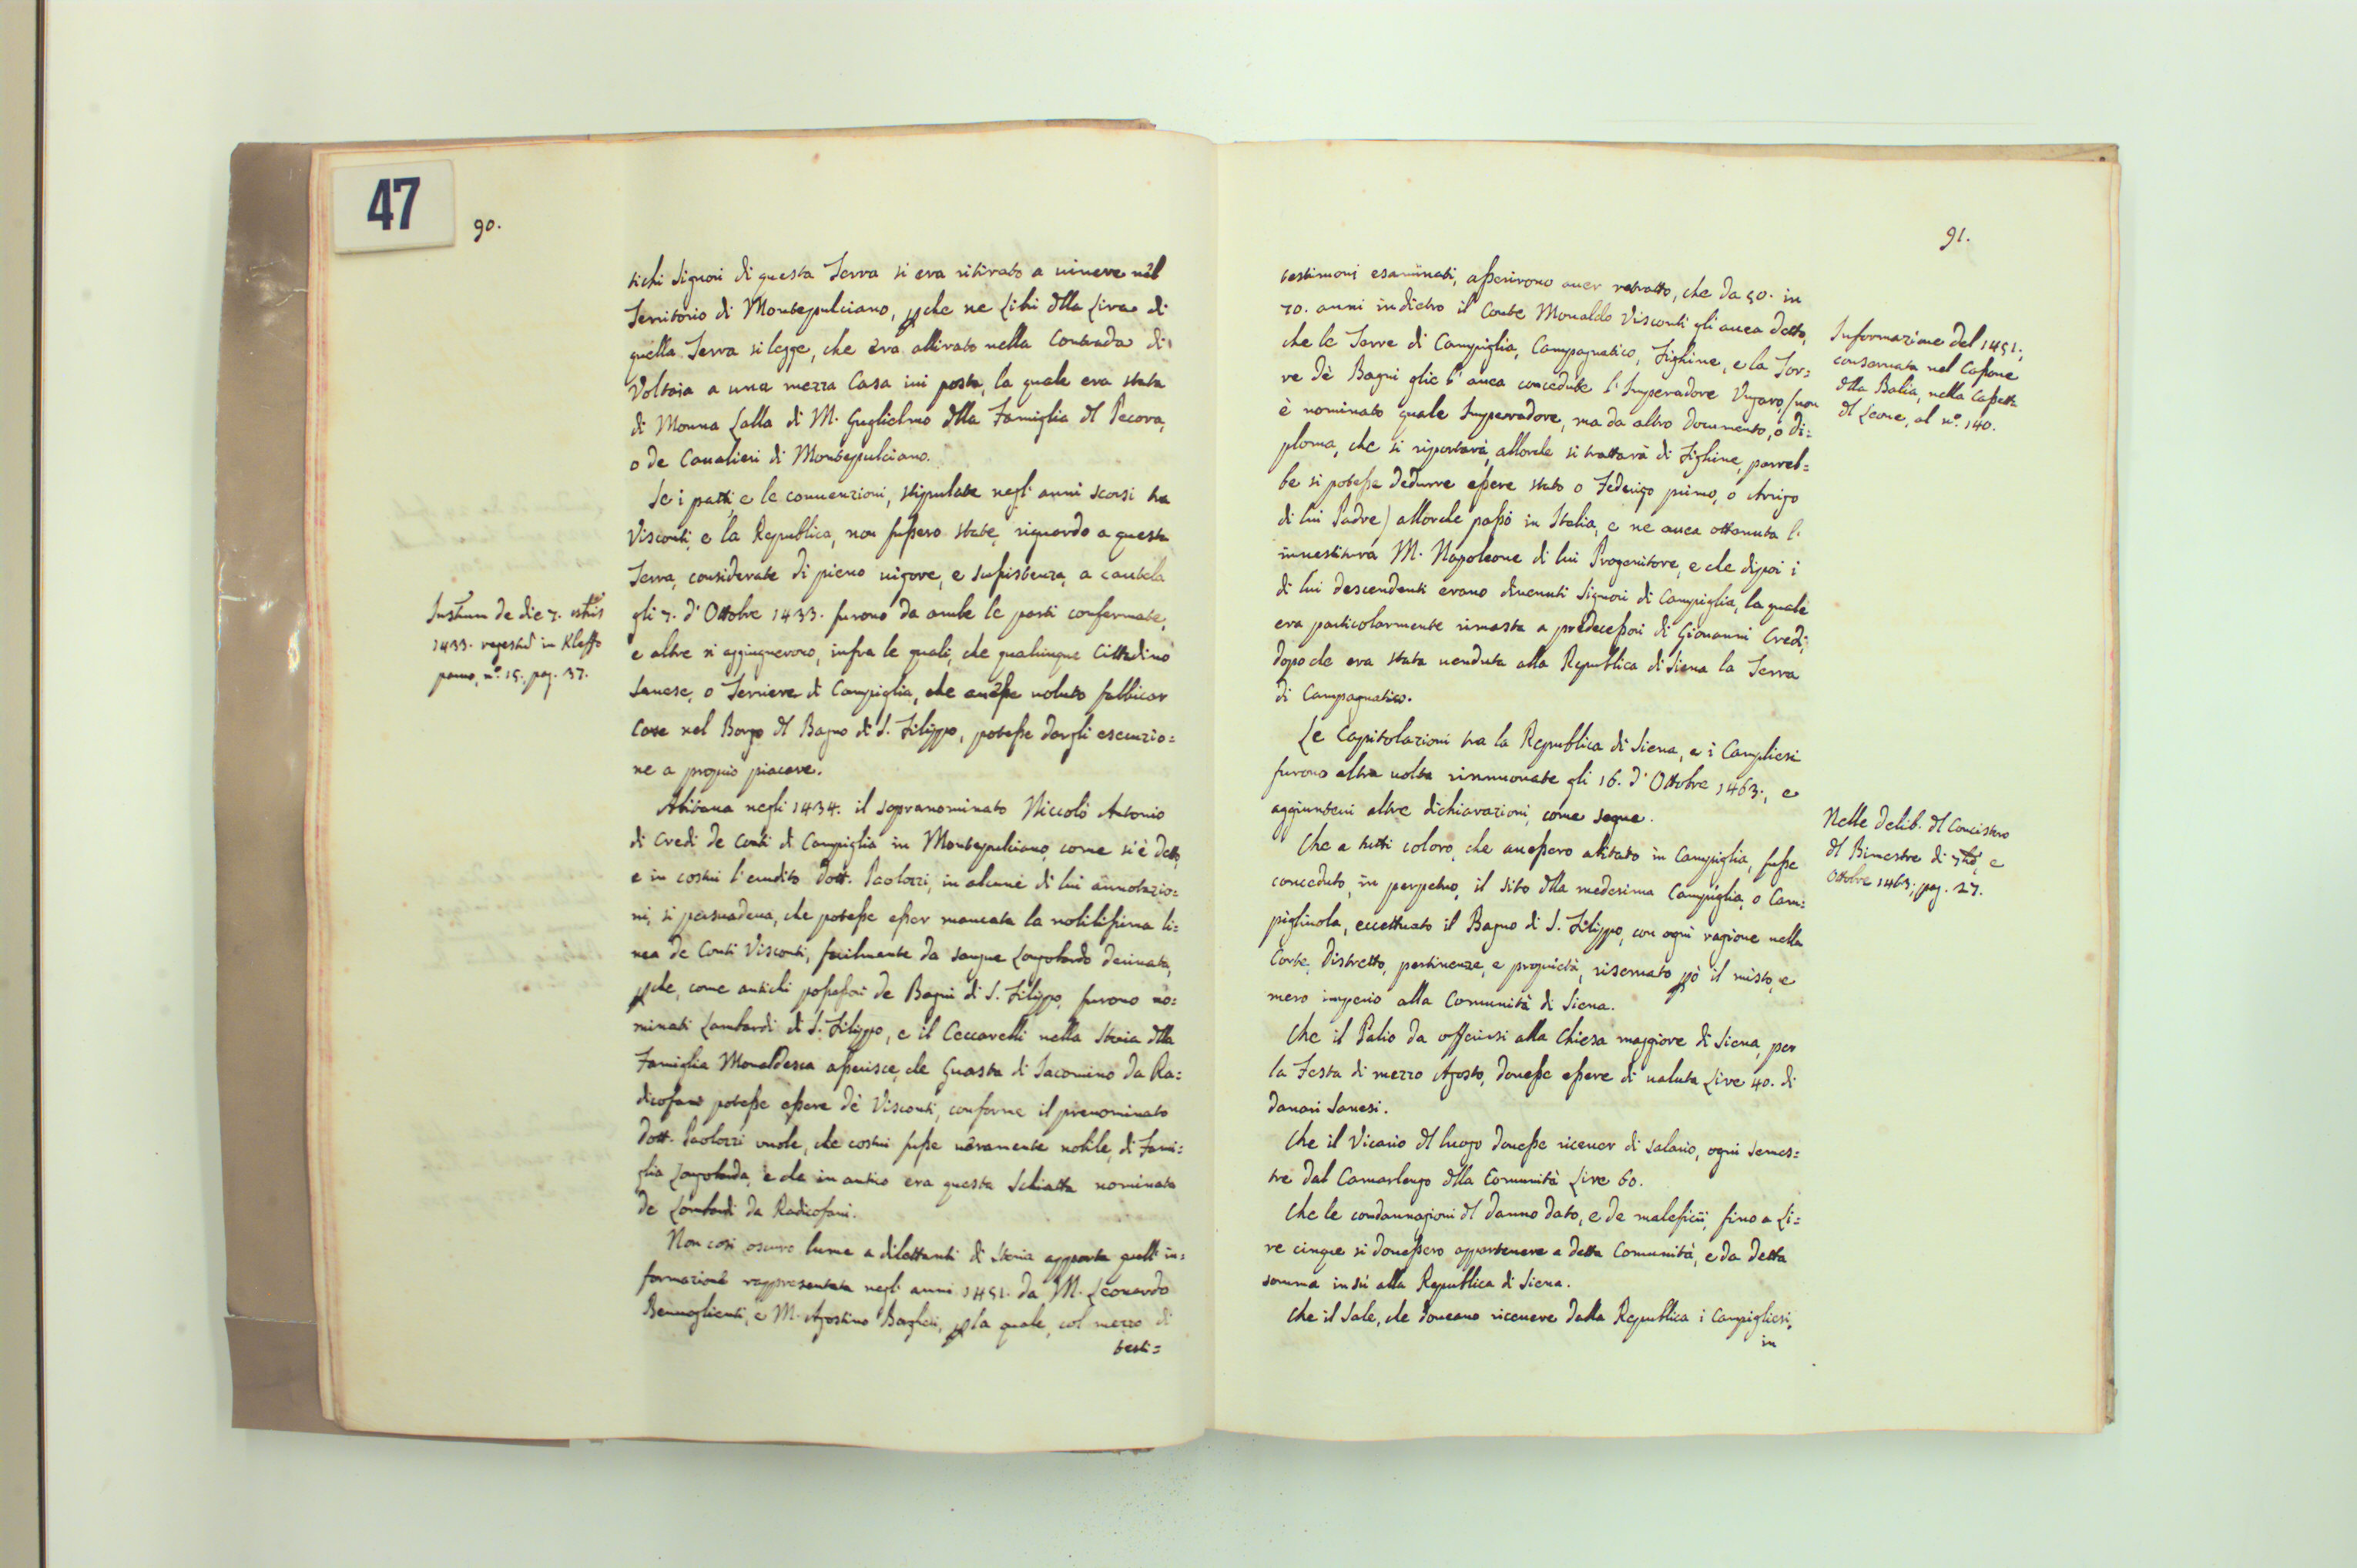 47
90.
tichi Signori di questa Terra si era ritirato a vivere nel
Territorio di Montepulciano, pche ne Libri dlla Lira di
quella Terra si legge, che era allirato nella Contrada di
Voltaia a una mezza Casa ivi posta, la quale era stata
di Monna Lalla di M. Guglielmo dlla Famiglia dl Pecora,
o de Cavalieri di Montepulciano.
Se i patti, e le convenzioni, stipulate negl'anni scorsi tra
Visconti, e la Republica, non fussero state, riguardo a questa
Terra, considerate di pieno vigore, e sussistenza, a cautela
gli 7. d'Ottobre 1433. furono da ambe le parti confermate,
e altre si aggiugnerono, infra le quali, che qualunque Cittadino
Sanese, o Terriere di Campiglia, che avesse voluto fabbricar
Case nel Borgo dl Bagno di S. Filippo, potesse dargli esenzio=
ne a proprio piacere.
Abitava negli 1434. il sopranominato Niccolò Antonio
di Credi de Conti di Campiglia in Montepulciano, come si è detto,
e in costui l'erudito Dott. Paolozzi, in alcune di lui annotazio=
ni, si persuadeva, che potesse esser mancata la nobilissima li=
nea de Conti Visconti, facilmente da sangue Longobardo derivata,
pche, come antichi possessori de Bagni di S. Filippo, furono no=
minati Lambardi di S. Filippo, e il Ceccarelli nella Storia dlla
Famiglia Monaldesca asserisce, che Guasta di Jacomino da Ra=
dicofani potesse essere dè Visconti, conforme il prenominato
Dott. Paolozzi vuole, che costui fusse veramente nobile, di Fami=
glia Longobarda, e che in antico era questa Schiatta nominata
de Lombardi da Radicofani.
Non così oscuro lume a dilettanti di Storia apporta quell'in=
formazione rappresentata negl'anni 1451. da M. Leonardo
Benvoglienti, e M. Agostino Borghesi, p la quale, col mezzo di
testi=
Instrum de die 7. 8bris
1433. regestrū in Kleffo
pmo, n.º 15., pag. 37.
91.
testimoni esaminati, asserirono aver retratto, che da 50. in
70. anni indietro il Conte Monaldo Visconti gli avea detto,
che le Terre di Campiglia, Campagnatico, Fighine, e la Tor=
re dè Bagni glie l'avea concedute l'Imperadore Ungaro (non
è nominato quale Imperadore, ma da altro Documento, o di=
ploma, che si riportarà, allorche si trattarà di Fighine, parreb=
be si potesse dedurre essere stato o Federigo primo, o Arrigo
di lui Padre) allorche passò in Italia, e ne avea ottenuta l'
investitura M. Napoleone di lui Progenitore, e che dipoi i
di lui descendenti erano divenuti Signori di Campiglia, la quale
era particolarmente rimasta a predecessori di Giovanni Credi,
dopo che era stata venduta alla Republica di Siena la Terra
di Campagnatico.
Le Capitolazioni tra la Republica di Siena, e i Campliesi
furono altra volta rinnuovate gli 16. d'Ottobre 1463., e
aggiuntevi altre dichiarazioni, come segue.
Che a tutti coloro, che avessero abitato in Campiglia, fusse
conceduto, in perpetuo, il sito dlla medesima Campiglia, o Cam=
pigliuola, eccettuato il Bagno di S. Filippo, con ogni ragione nella
Corte, Distretto, pertinenze, e proprietà, riservato pò il misto, e
mero imperio alla Comunità di Siena.
Che il Palio da offerirsi alla Chiesa maggiore di Siena, per
la Festa di mezzo Agosto, dovesse essere di valuta Lire 40. di
danari Sanesi.
Che il Vicario dl luogo dovesse ricever di salario, ogni semes=
tre dal Camarlengo dlla Comunità Lire 60.
Che le condannagioni dl danno dato, e de maleficii, fino a Li=
re cinque si dovessero appartenere a detta Comunità, e da detta
somma in sù alla Republica di Siena.
Che il Sale, che doveano ricevere dalla Republica i Campigliesi,
in
Informazione del 1451.,
conservata nel Cassone
dlla Balìa, nella Cassetta
dl Leone, al n.º 140.
Nelle delib. dl Concistoro
dl Bimestre di 7bre, e
Ottobre 1463., pag. 27.